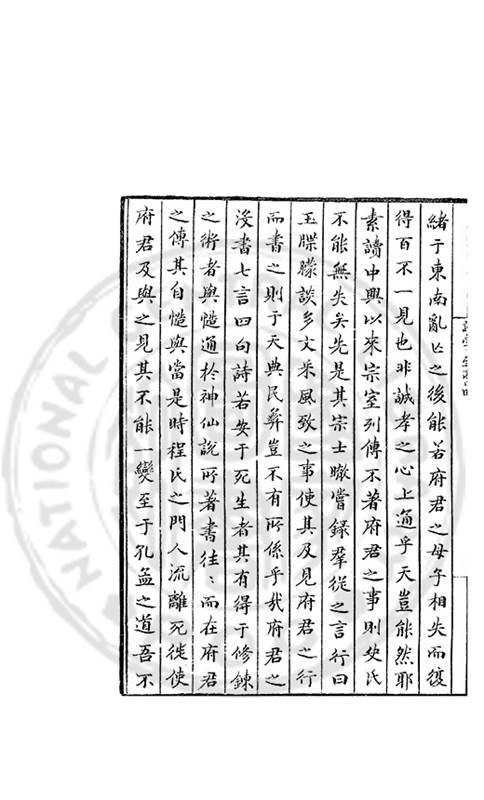 緒于東南亂亡之後能若府君之母子相失而復
得百不一見也非誠孝之心上通乎天豈能然耶
素讀中興以來宗室列傳不著府君之事則史氏
不能無失矣先是其宗士暾嘗録羣從之言行曰
玉牒朦談多文采風致之事使其及見府君之行
而書之則于天典民彝豈不有所係乎哉府君之
沒書七言四句詩若安于死生者其有得于修鍊
之術者與愭通於神仙說所著書往〻而在府君
之傳其自愭與當是時程氏之門人流離死徙使
府君及與之見其不能一變至于孔孟之道吾不
NATIONAL